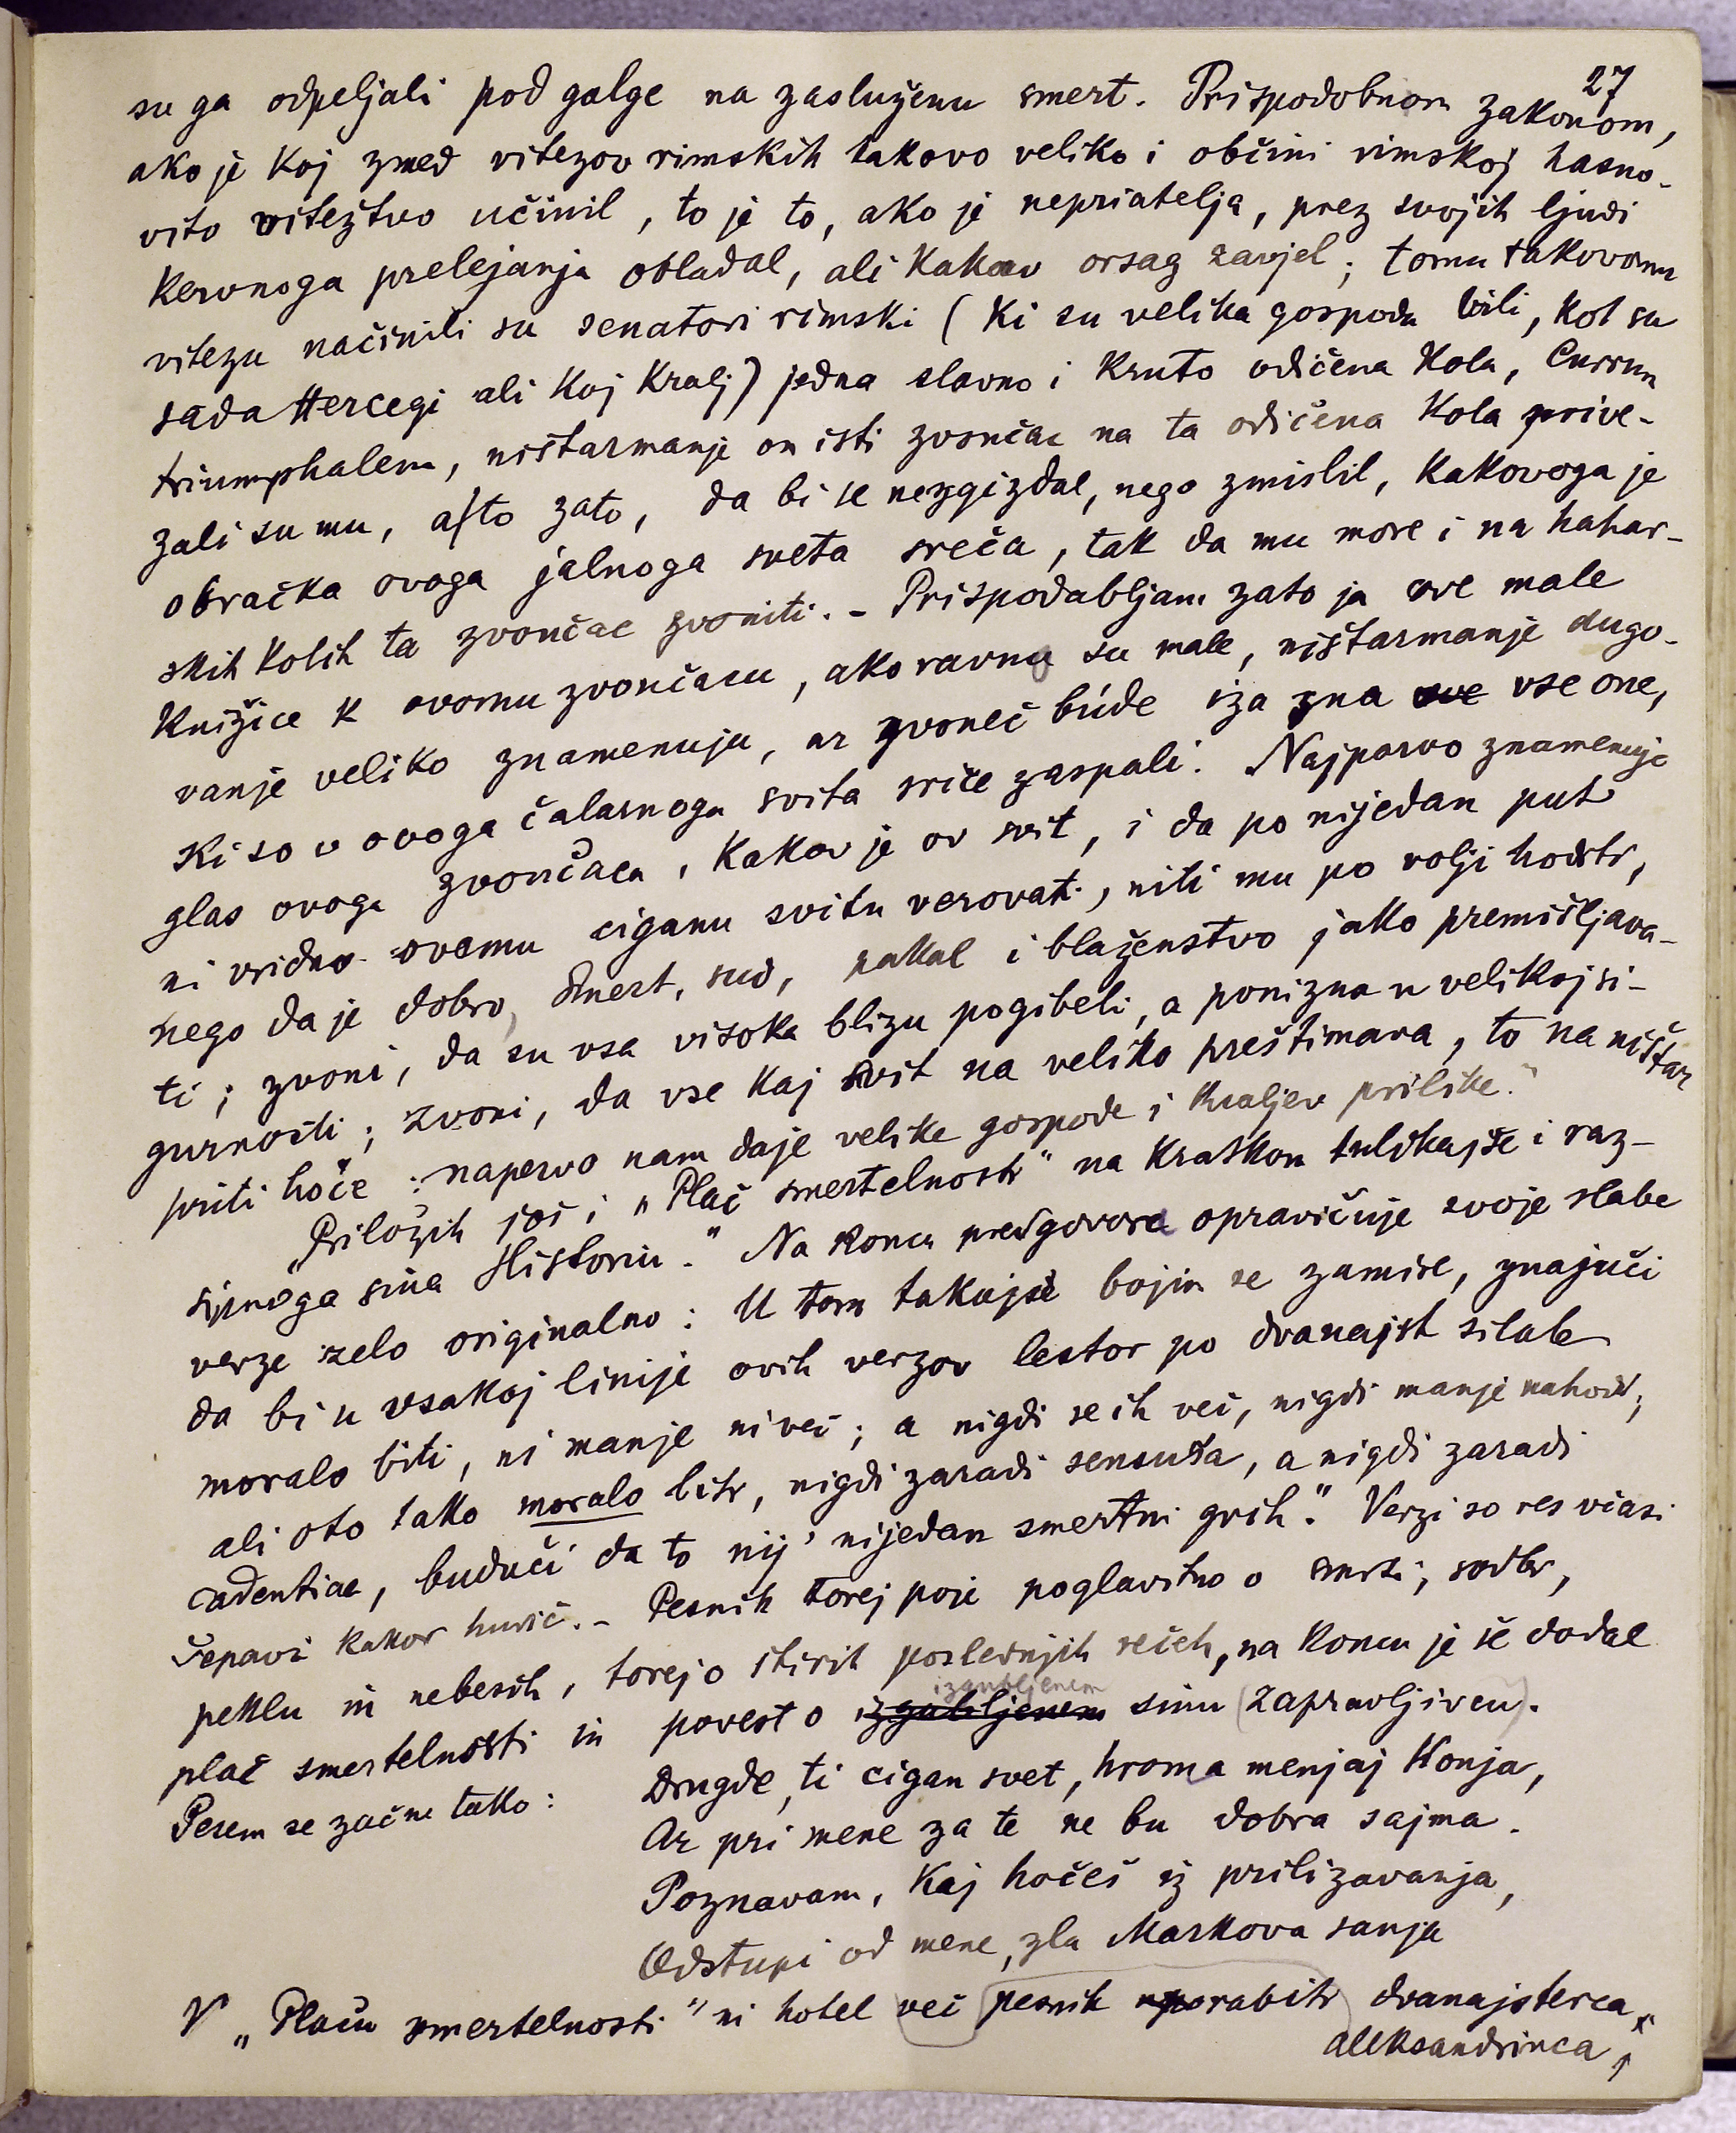 27
su ga odpeljali pod galge na zasluženu smert. Prispodobnom zakonom,
ako je koj zmed vitezov rimskih takovo veliko i občini rimskoj hasno-
vito viteztvo učinil, to je to, ako je nepriatelja, prez svojih ljudi
kervnoga prelejanja obladal, ali kakov orsag zavjel; tomu takovomu
vitezu načinili su senatori rimski (ki su velika gospoda bili, kot su
sada Hercegi ali koj Kralj) jedna slavno i kruto odičena kola, Currum
triumphalem, ništarmanje on isti zvončac na ta odičena kola prive-
zali su mu, a to zato, da bi se nezgizdal, nego zmislil, kakovoga je
obračka ovoga jalnoga sveta sreča, tak da mu more i na hahar-
skih kolih ta zvončac zvoniti. - Prispodabljam zato ja ove male
knižice k ovomu zvončacu, ako ravno su male, ništarmanje dugo-
vanje veliko znamenuju, ar zvoneč búde iza zna sve vse one,
ki so v ovoga čalarnoga svita sriče zaspali. Najparvo znamenuje
glas ovoga zvončaca, kakov je ov svit, i da po nijedan put
ni vridno ovomu ciganu svitu verovati, niti mu po volji hoditi,
nego da je dobro, smert, sud, pakal i blaženstvo jako premišljava-
ti; zvoni, da su vsa visoka blizu pogibeli, a ponizna u velikoj si-
gurnosti; zvoni, da vse kaj svit na veliko preštimava, to na ništar
priti hoče; napervo nam daje velike gospode i kraljev prilike."
"Priložih još i "Plač smertelnosti" na kratkom tulikajše i raz-
sipnoga sina Historiu." Na koncu predgovora opravičuje svoje slabe
verze zelo originalno: U tom takajše bojim se zamire, znajuči
da bi u vsakoj linije ovih verzov lestor po dvanajst silab
moralo biti, ni manje ni več; a nigdi se ih več, nigdi manje nahodi;
ali oto tako moralo biti, nigdi zaradi sensuša, a nigdi zaradi
cadentiae, buduči da to nij' nijedan smertni grih." Verzi so res včasi
šepavi kakor hudič. - Pesnik torej poje poglavitno o smrti, sodbi,
peklu in nebesih, torej o štirih poslednjih rečeh, na koncu je še dodal
plač smertelnosti in povest o izgubljenem izgubljenem sinu (zapravljivcu).
Pesem se začne tako:
Drugde, ti cigan svet, hroma menjaj konja,
Ar pri mene za te ne bu dobra sajma.
Poznavam, kaj hočeš iz prilizavanja,
Odstupi od mene, zla Markova sanja
V "Plaču smertelnosti" ni hotel več pesnik uporabiti dvanajsterca
aleksandrinca,